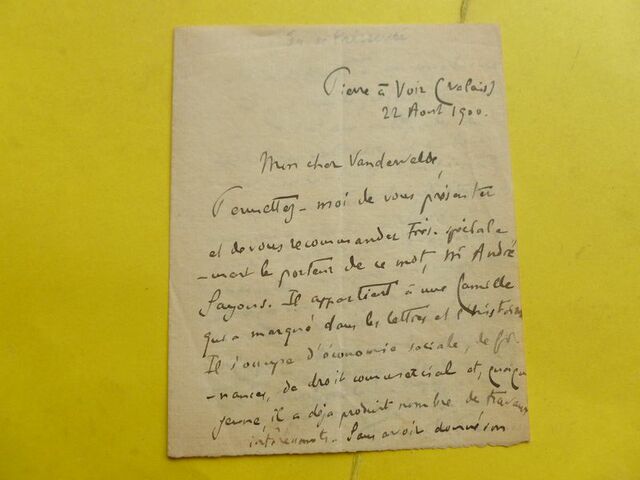 Pierre à Voir (Valais)
22 Août 1900.
Mon cher Vandervelde,
Permettez-moi de vous présenter
et de vous recommander très-spéciale
-ment le porteur de ce mot, Mr André
Sayous. Il appartient à une famille
qui a marqué dans les lettres et l'histoire
Il s'occupe d'économie sociale, de fi-
-nances, de droit commercial et, quoique
jeune, il a déjà produit nombre de travaux
intéressants. Sans avoir donné son